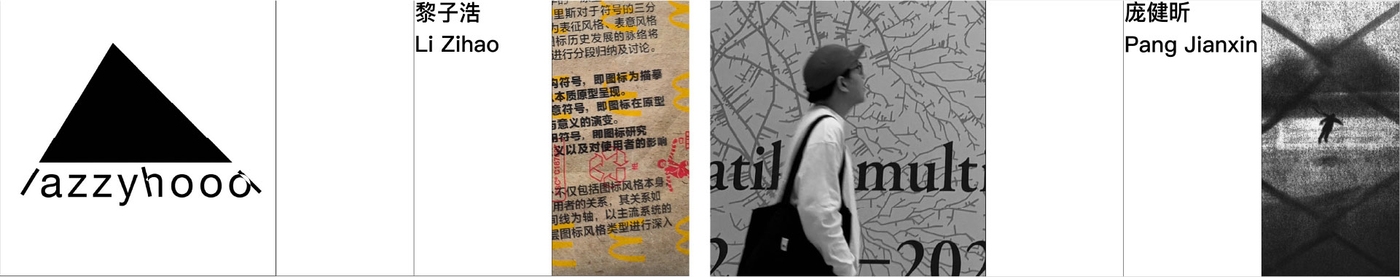 /azzyhooo\
黎子浩
Li Zihao
里斯对于符号的三分
为表征风格、表意风格
标历史发展的脉络将
进行分段归纳及讨论。
构符号，即图标为描摹
本质原型呈现。
意符号，即图标在原型
与意义的演变。
用符号，即图标研究
义以及对使用者的影响
不仅包括图标风格本身
用者的关系，其关系如
间线为轴，以主流系统的
层图标风格类型进行深入
atil multi
2 –202
庞健昕
Pang Jianxin